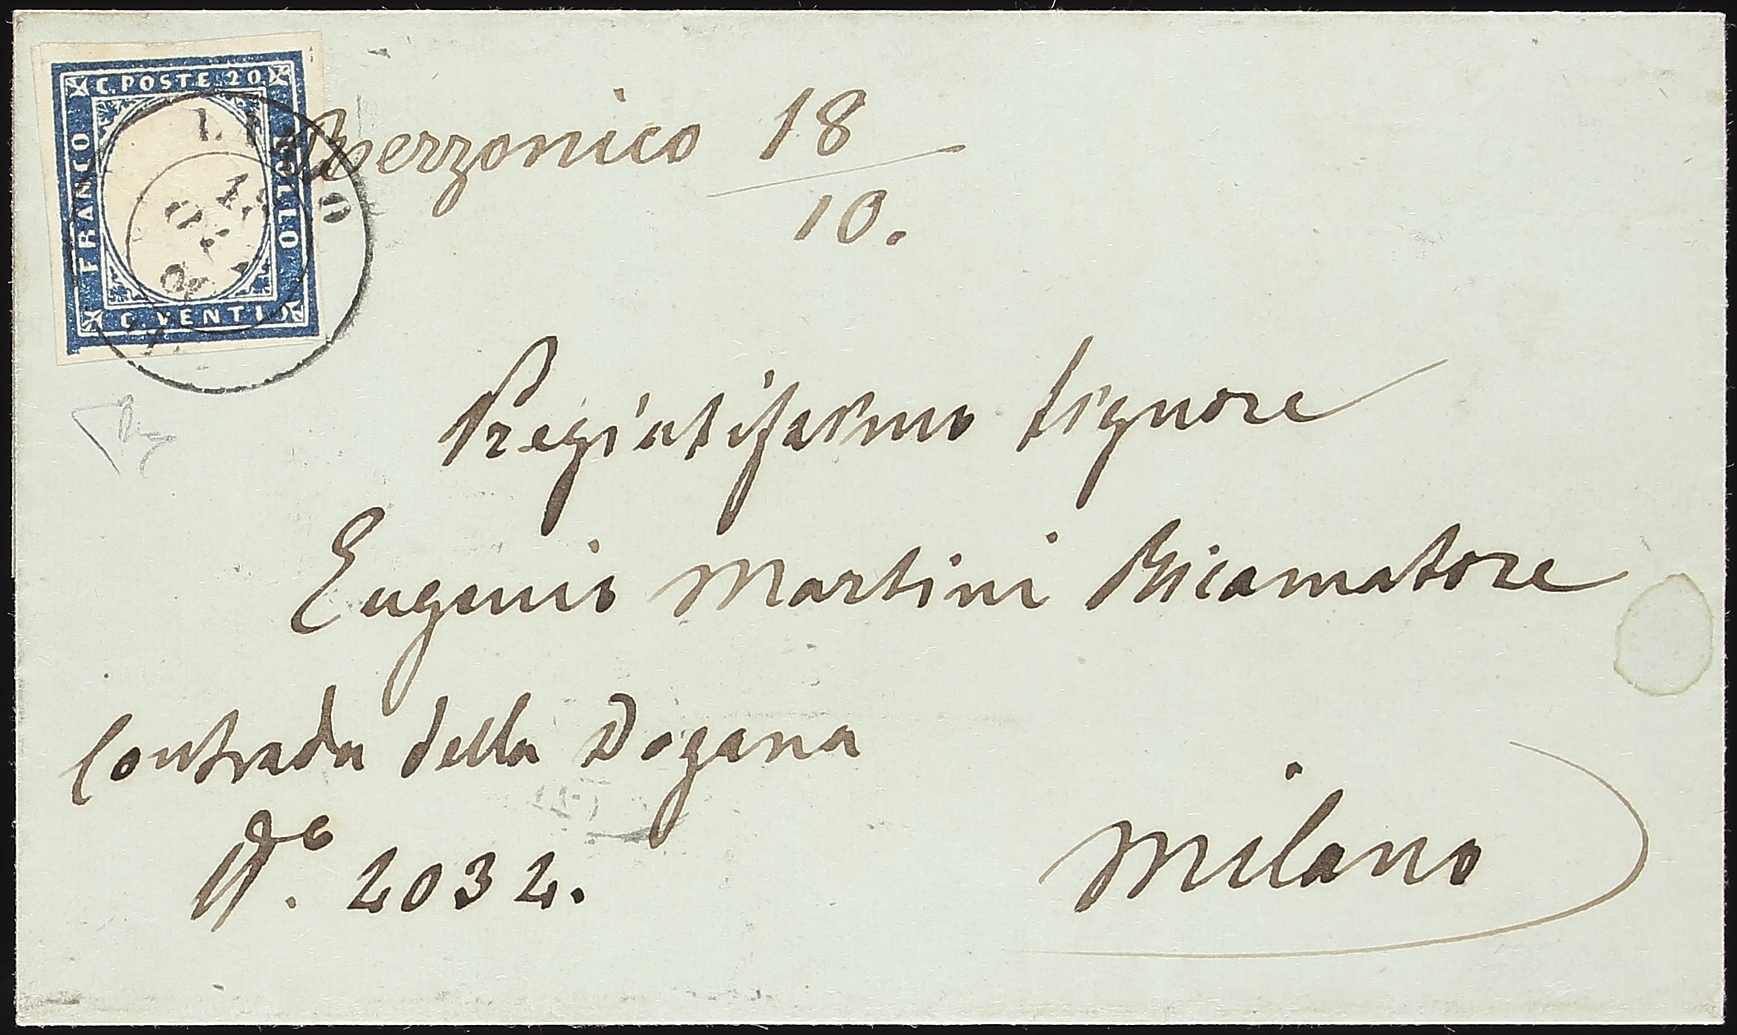 C. POSTE 20
FRANCO
BOLLO
C. VENTI
Rezzonico 18
10.
Pregiatissimo Signore
Eugenio Martini Ricamatore
Contrada della Dogana
N.° 2032.
Milano